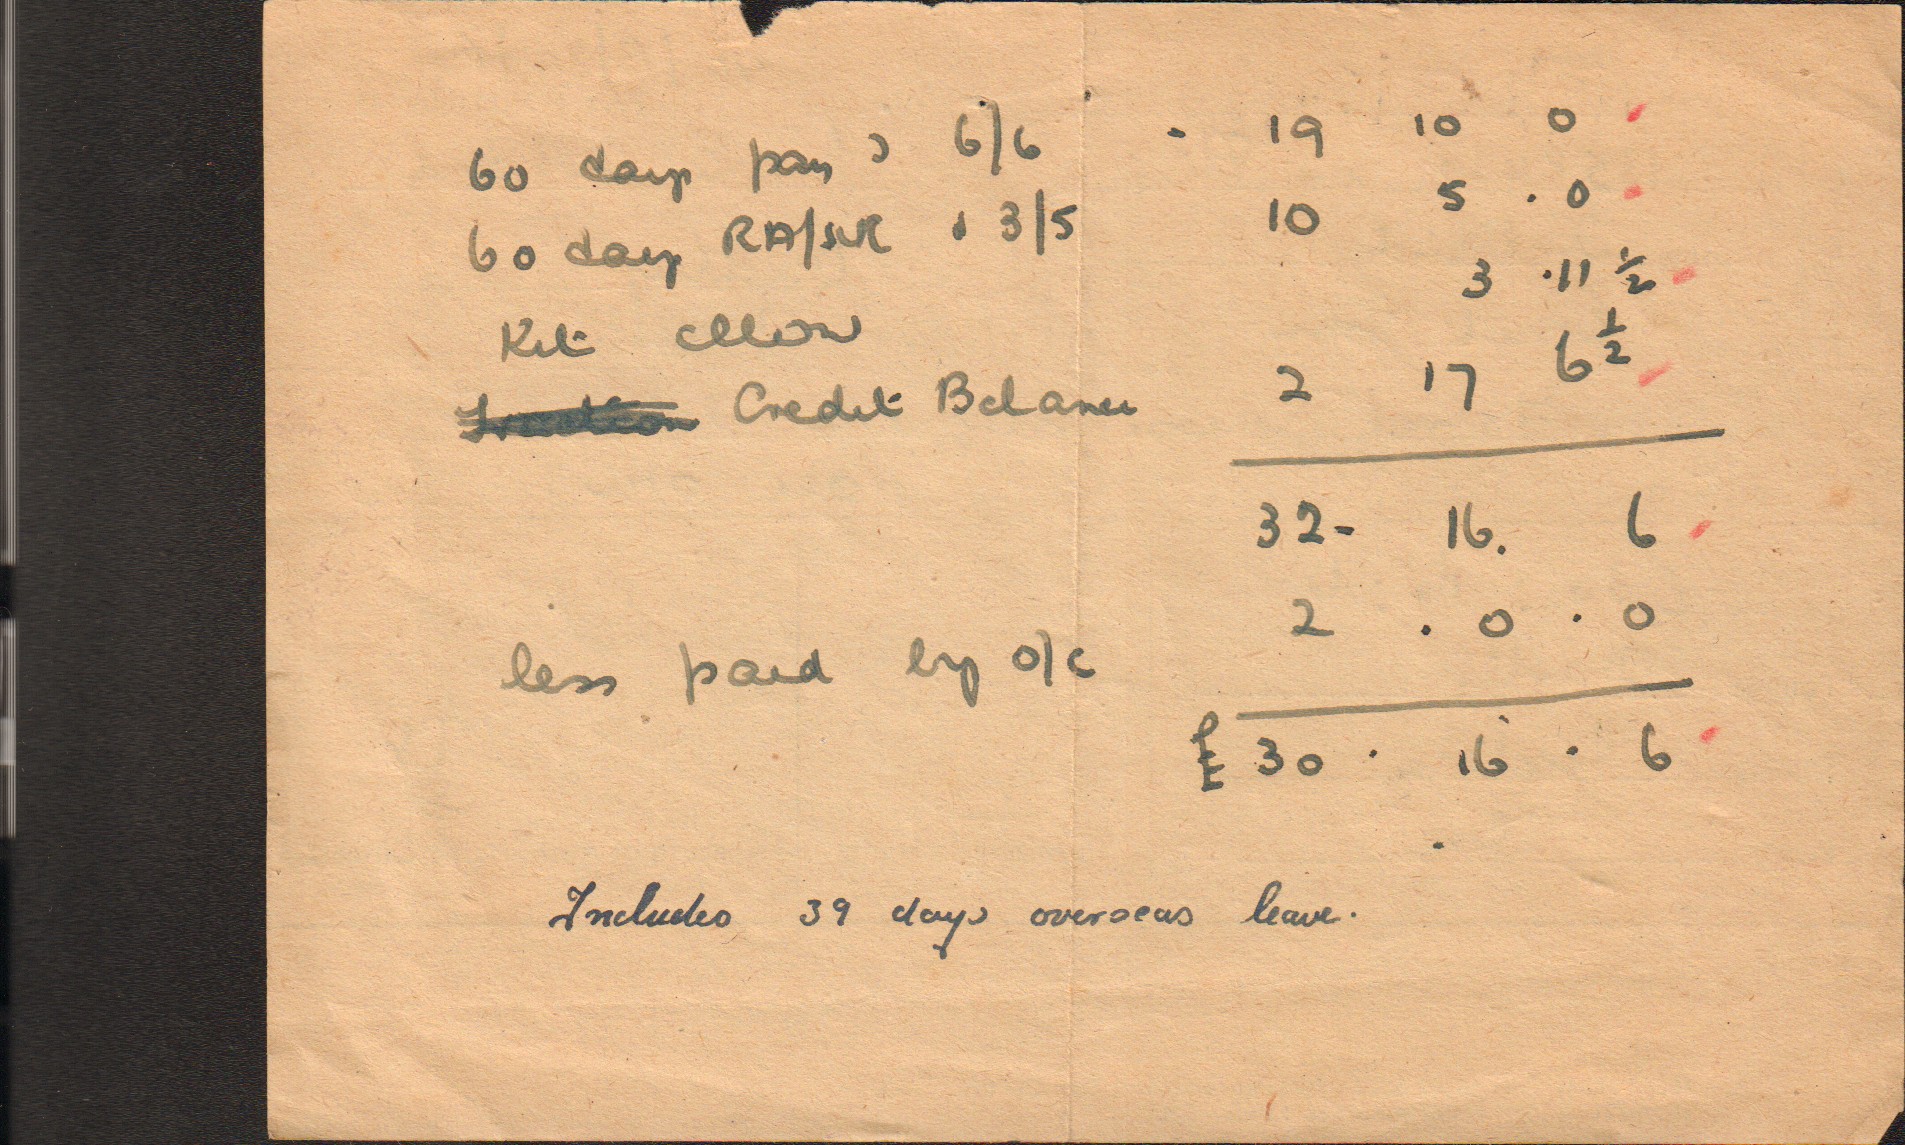 60 days pay @ 6/6 - 19 10 0
60 days RA/SUR @ 3/5 10 5 . 0
Kit allow 3 . 11 ½
Credit Balance 2 17 6 ½
32 - 16 . 6
less paid by O/C 2 . 0 . 0
£ 30 . 16 . 6
Includes 39 days overseas leave.